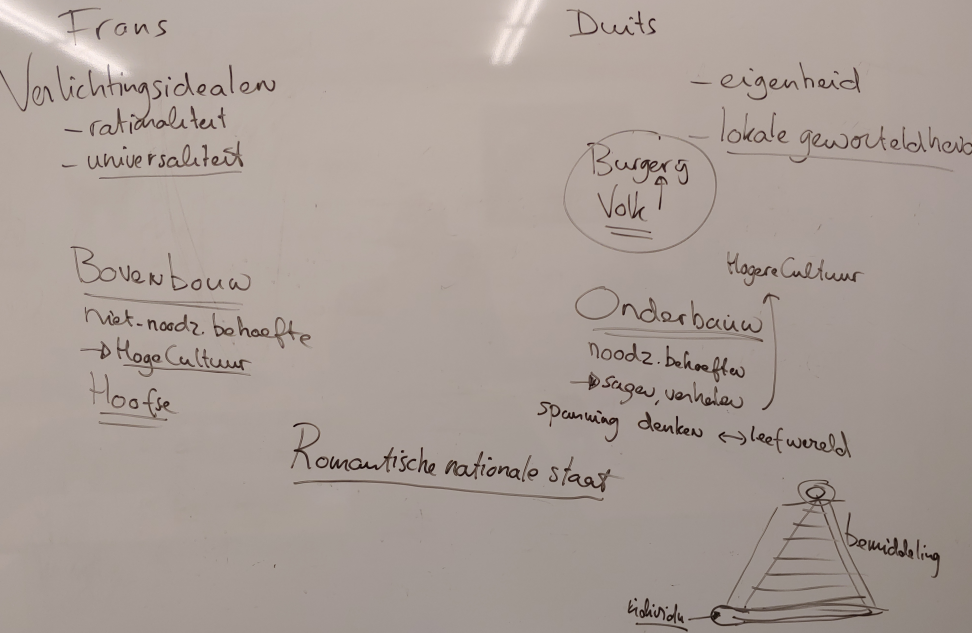 Frans
Verlichtingsidealen
- rationaliteit
- universaliteit
Bovenbouw
niet-noodz. behoefte
→ Hoge Cultuur
Hoofse
Duits
- eigenheid
- lokale geworteldheid
Burgerij
↑
Volk
Hogere Cultuur
Onderbouw
noodz. behoeften
→ sagen, verhalen
spanning denken ↔ leefwereld
Romantische nationale staat
bemiddeling
individu